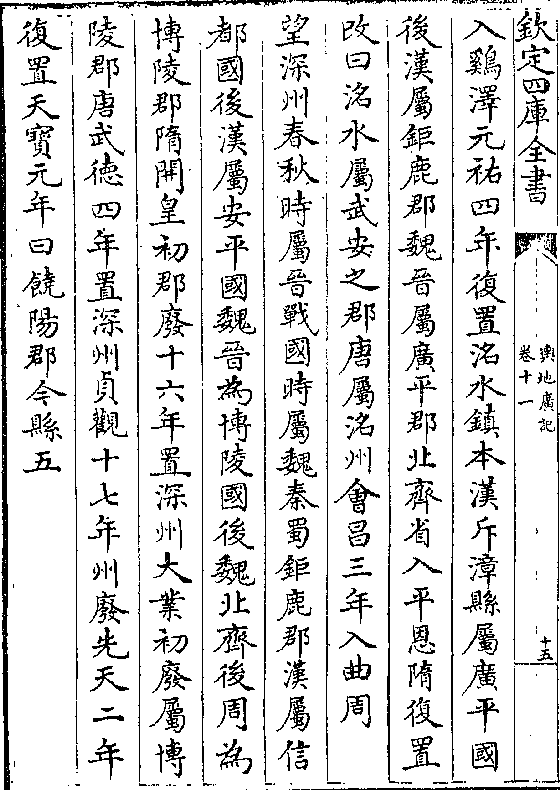 欽定四庫全書
輿地廣記
卷十一
十五
入鷄澤元祐四年復置洺水鎮本漢斥漳縣屬廣平國
後漢屬鉅鹿郡魏晉屬廣平郡北齊省入平恩隋復置
改曰洺水屬武安之郡唐屬洺州會昌三年入曲周
望深州春秋時屬晉戰國時屬魏秦蜀鉅鹿郡漢屬信
都國後漢屬安平國魏晉為博陵國後魏北齊後周為
博陵郡隋開皇初郡廢十六年置深州大業初廢屬博
陵郡唐武德四年置深州貞觀十七年州廢先天二年
復置天寳元年曰饒陽郡今縣五